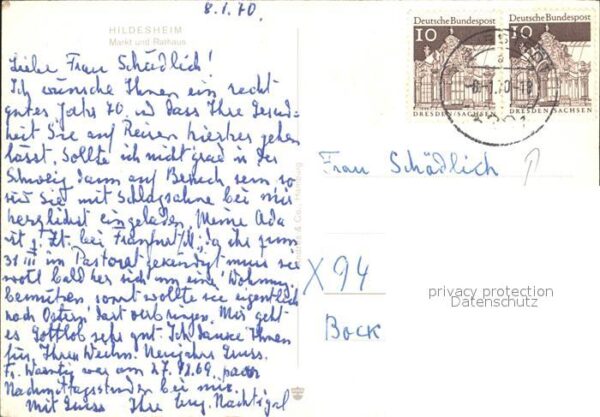 8.1.70.
HILDESHEIM
Markt und Rathaus
Liebe Frau Schädlich!
Ich wünsche Ihnen ein recht
gutes Jahr 70, und dass Ihre Gesund-
heit Sie auf Reisen hierher gehen
lässt. Sollte ich nicht grad in der
Schweiz dann auf Besuch sein so
sind Sie mit Schlagsahne bei mir
herzlichst eingeladen. Meine Ada
ist z. Zt. bei Frankfurt/M; da ihr zum
31 III im Pastorat gekündigt muss sie
wohl bald her sich um eine Wohnung
bemühen sonst wollte sie eigentlich
nach Ostern dort verbringen. Mir geht
es Gottlob sehr gut. Ich danke Ihnen
für Ihren Weihn. Neujahrs Gruss.
Fr. war am 27.12.69. paar
Nachmittagsstunden bei mir.
Mit Gruss Ihre Nachtigal
Deutsche Bundespost Deutsche Bundespost
10 10
DRESDEN/SACHSEN DRESDEN/SACHSEN
Frau Schädlich
X 94
Bock
& Co., Hamburg
privacy protection
Datenschutz